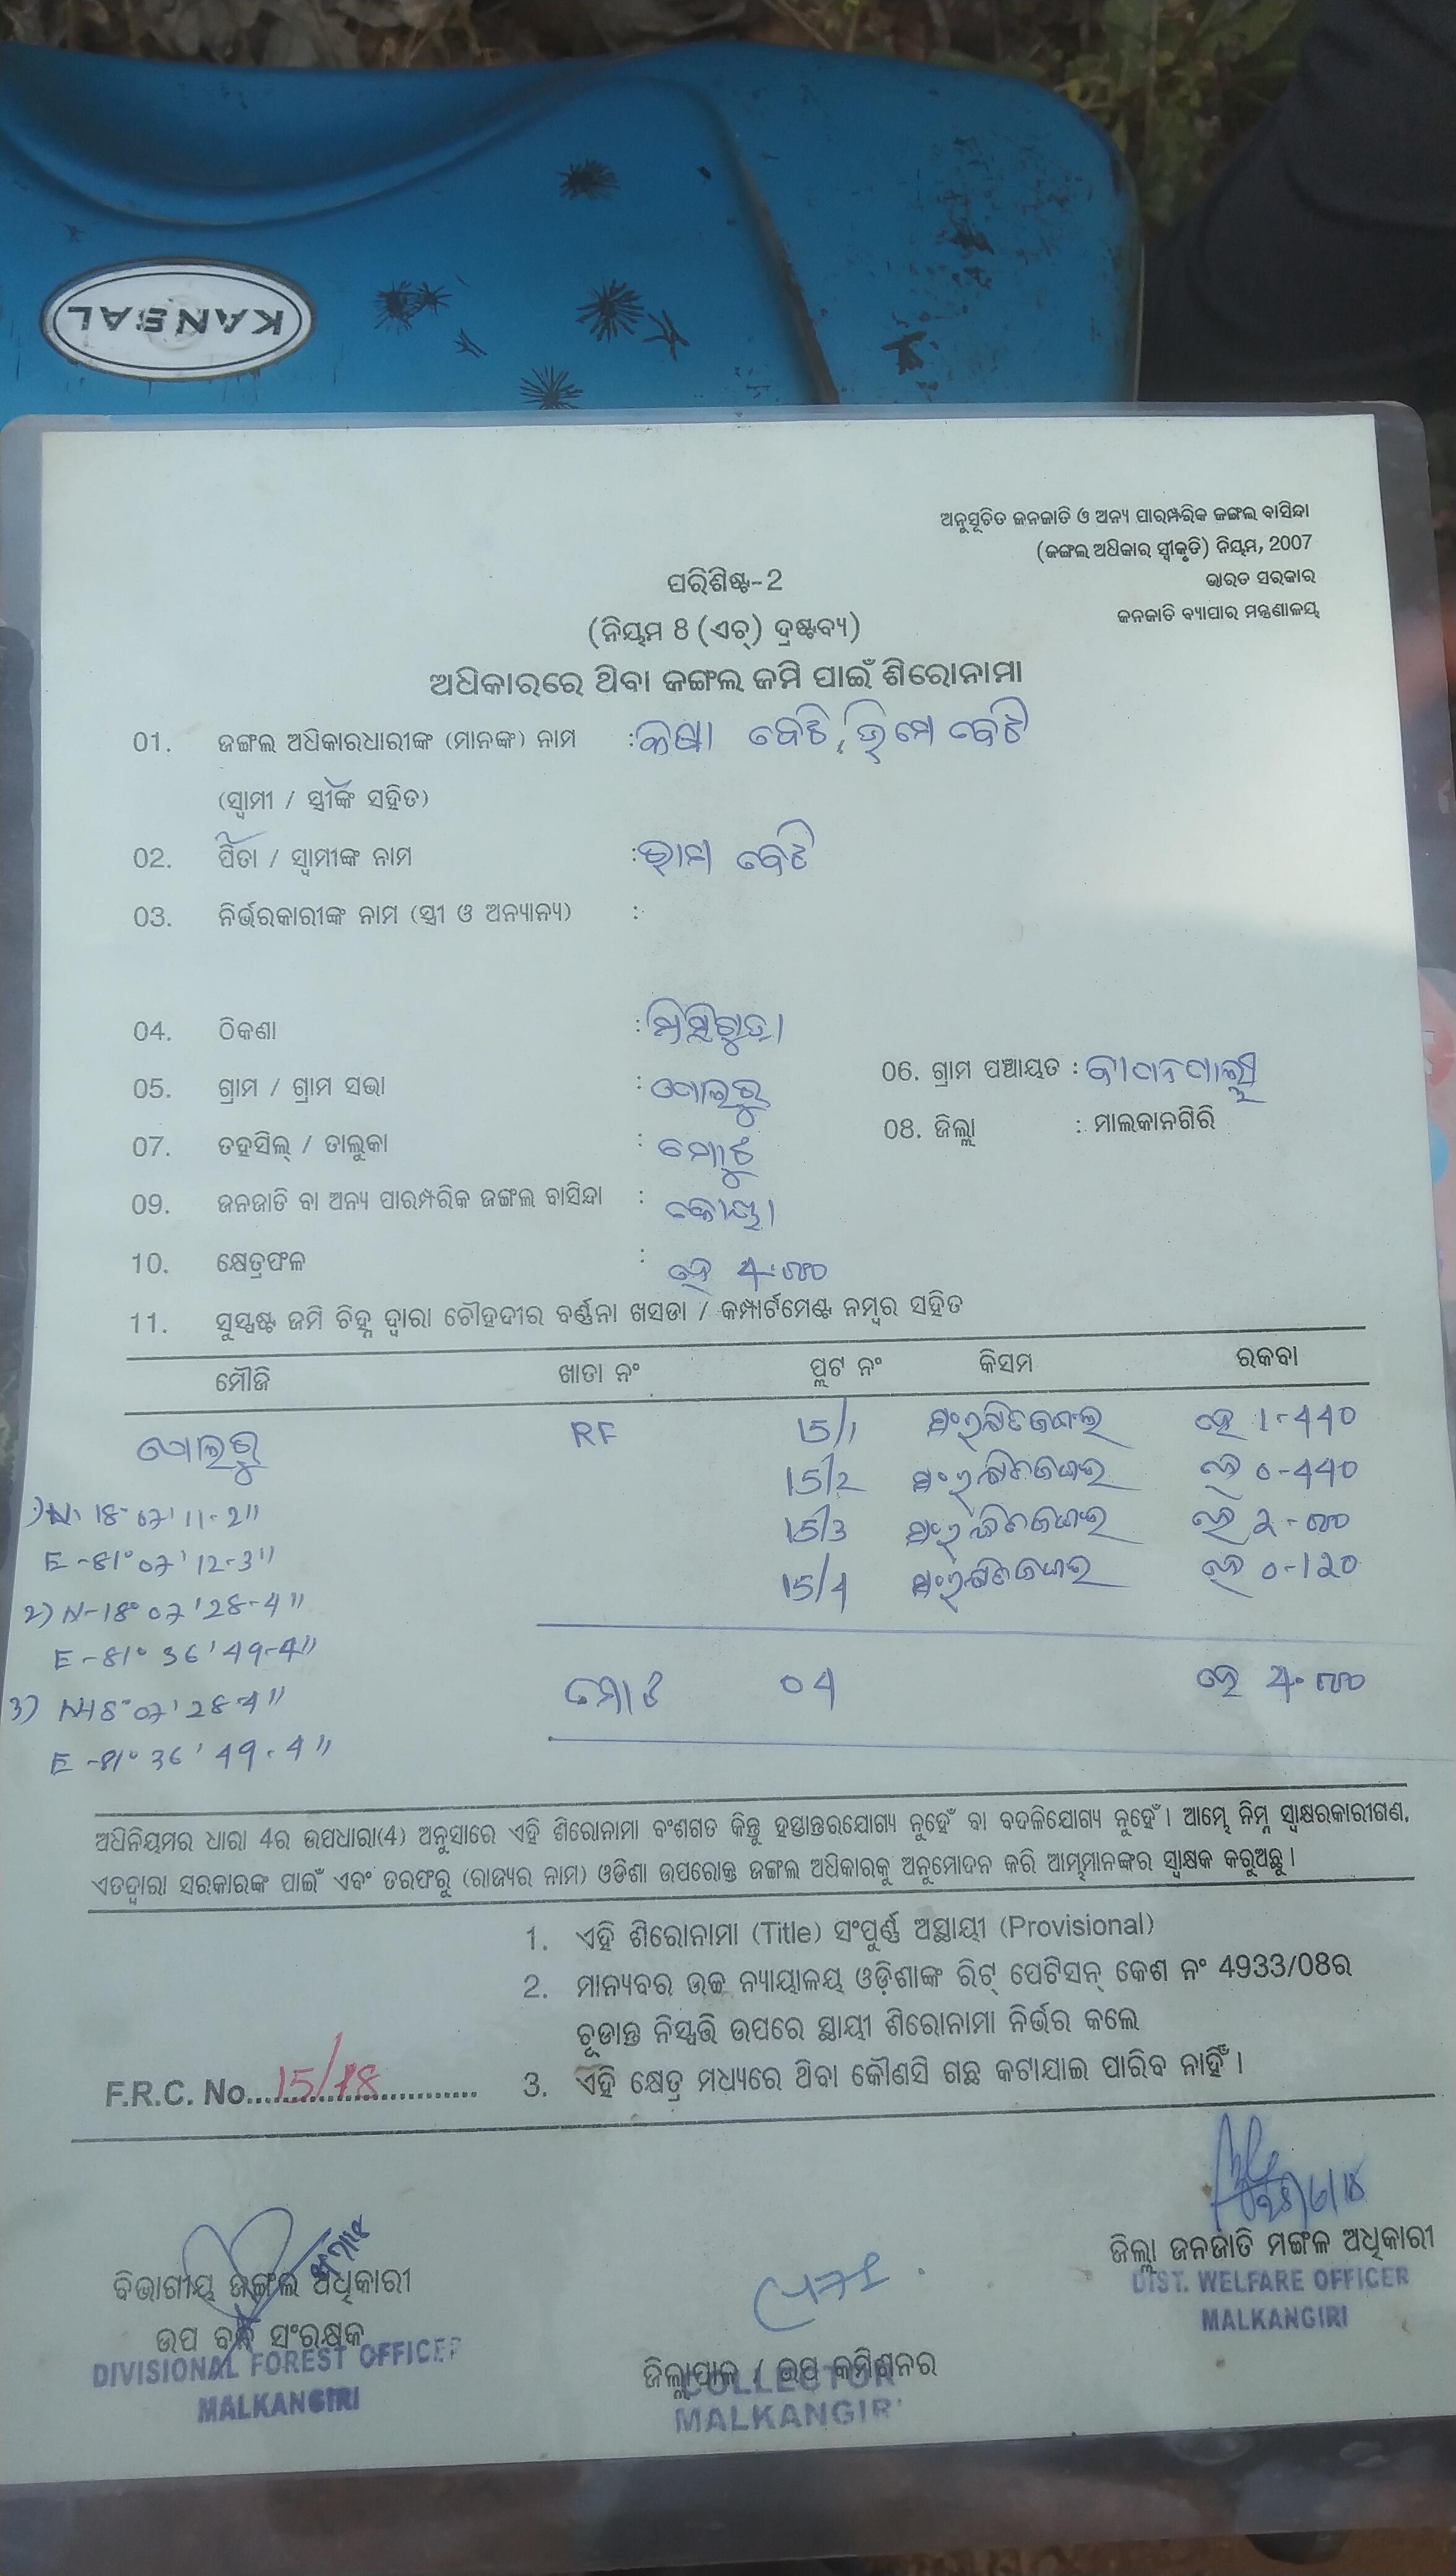 KANSAL
ଅନୁସୂଚିତ ଜନଜାତି ଓ ଅନ୍ୟ ପାରମ୍ପରିକ ଜଙ୍ଗଲ ବାସିନ୍ଦା
(ଜଙ୍ଗଲ ଅଧିକାର ସ୍ୱୀକୃତି) ନିୟମ, 2007
ଭାରତ ସରକାର
ଜନଜାତି ବ୍ୟାପାର ମନ୍ତ୍ରଣାଳୟ
ପରିଶିଷ୍ଟ-2
(ନିୟମ 8 (ଏଚ୍) ଦ୍ରଷ୍ଟବ୍ୟ)
ଅଧିକାରରେ ଥିବା ଜଙ୍ଗଲ ଜମି ପାଇଁ ଶିରୋନାମା
01. ଜଙ୍ଗଲ ଅଧିକାରଧାରୀଙ୍କ (ମାନଙ୍କ) ନାମ :
(ସ୍ୱାମୀ / ସ୍ତ୍ରୀଙ୍କ ସହିତ)
02. ପିତା / ସ୍ୱାମୀଙ୍କ ନାମ :
03. ନିର୍ଭରକାରୀଙ୍କ ନାମ (ସ୍ତ୍ରୀ ଓ ଅନ୍ୟାନ୍ୟ) :
04. ଠିକଣା :
05. ଗ୍ରାମ / ଗ୍ରାମ ସଭା : 06. ଗ୍ରାମ ପଞ୍ଚାୟତ :
07. ତହସିଲ୍ / ତାଲୁକା : ମୋଟୁ 08. ଜିଲ୍ଲା : ମାଲକାନଗିରି
09. ଜନଜାତି ବା ଅନ୍ୟ ପାରମ୍ପରିକ ଜଙ୍ଗଲ ବାସିନ୍ଦା : କୋୟା
10. କ୍ଷେତ୍ରଫଳ : ହେ 4.00
11. ସୁସ୍ପଷ୍ଟ ଜମି ଚିହ୍ନ ଦ୍ୱାରା ଚୌହଦୀର ବର୍ଣ୍ଣନା ଖସଡା / କମ୍ପାର୍ଟମେଣ୍ଟ ନମ୍ବର ସହିତ
ମୌଜି ଖାତା ନଂ ପ୍ଲଟ ନଂ କିସମ ରକବା
RF 15/1 ସଂରକ୍ଷିତ ଜଙ୍ଗଲ ହେ 1-440
15/2 ସଂରକ୍ଷିତ ଜଙ୍ଗଲ ହେ 0-440
1) N- 18° 07' 11-2"
15/3 ସଂରକ୍ଷିତ ଜଙ୍ଗଲ ହେ 2-00
E -81° 07' 12-3"
15/4 ସଂରକ୍ଷିତ ଜଙ୍ଗଲ ହେ 0-120
2) N-18° 07' 28-4"
E -81° 36' 49-4"
3) N-18° 07' 28-4" ମୋଟ 04 ହେ 4.00
E -81° 36' 49-4"
ଅଧିନିୟମର ଧାରା 4ର ଉପଧାରା(4) ଅନୁସାରେ ଏହି ଶିରୋନାମା ବଂଶଗତ କିନ୍ତୁ ହସ୍ତାନ୍ତରଯୋଗ୍ୟ ନୁହେଁ ବା ବଦଳିଯୋଗ୍ୟ ନୁହେଁ । ଆମ୍ଭେ ନିମ୍ନ ସ୍ୱାକ୍ଷରକାରୀଗଣ,
ଏତଦ୍ୱାରା ସରକାରଙ୍କ ପାଇଁ ଏବଂ ତରଫରୁ (ରାଜ୍ୟର ନାମ) ଓଡିଶା ଉପରୋକ୍ତ ଜଙ୍ଗଲ ଅଧିକାରକୁ ଅନୁମୋଦନ କରି ଆମ୍ଭମାନଙ୍କର ସ୍ୱାକ୍ଷକ କରୁଅଛୁ ।
1. ଏହି ଶିରୋନାମା (Title) ସଂପୁର୍ଣ୍ଣ ଅସ୍ଥାୟୀ (Provisional)
2. ମାନ୍ୟବର ଉଚ୍ଚ ନ୍ୟାୟାଳୟ ଓଡ଼ିଶାଙ୍କ ରିଟ୍ ପେଟିସନ୍ କେଶ ନଂ 4933/08ର
ଚୂଡାନ୍ତ ନିସ୍ପତ୍ତି ଉପରେ ସ୍ଥାୟୀ ଶିରୋନାମା ନିର୍ଭର କଲେ
F.R.C. No. 15/18 3. ଏହି କ୍ଷେତ୍ର ମଧ୍ୟରେ ଥିବା କୌଣସି ଗଛ କଟାଯାଇ ପାରିବ ନାହିଁ ।
ଜିଲ୍ଲା ଜନଜାତି ମଙ୍ଗଳ ଅଧିକାରୀ
DIST. WELFARE OFFICER
MALKANGIRI
ବିଭାଗୀୟ ଜଙ୍ଗଲ ଅଧିକାରୀ
ଉପ ବନ ସଂରକ୍ଷକ
DIVISIONAL FOREST OFFICER
MALKANGIRI
ଜିଲ୍ଲାପାଳ / ଉପ କମିଶନର
COLLECTOR
MALKANGIRI